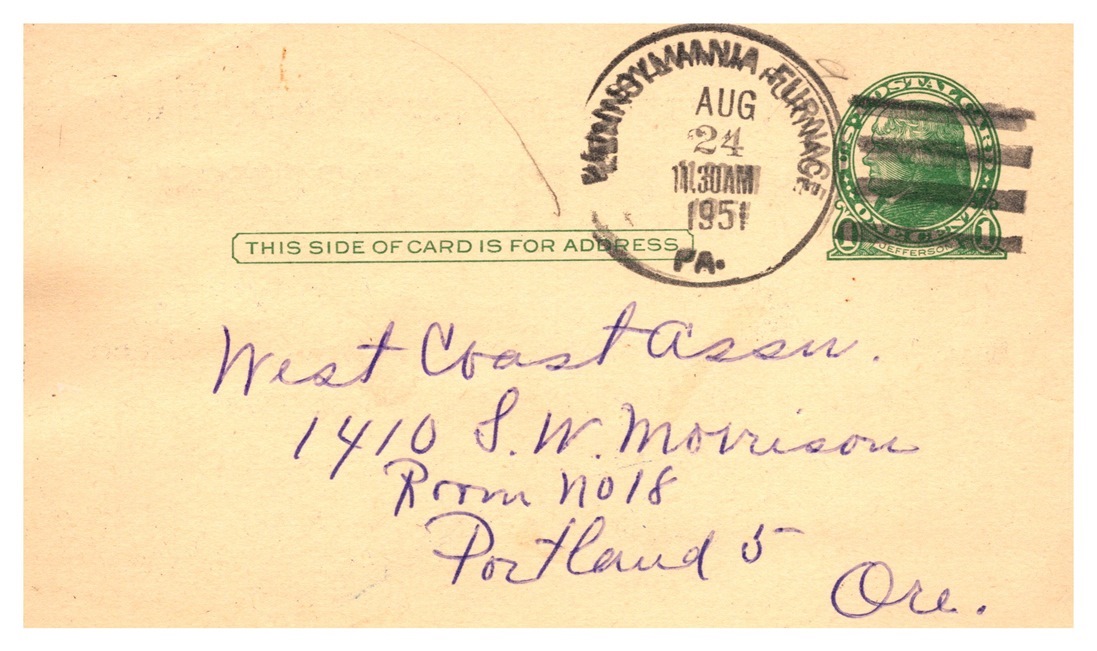 PENNSYLVANIA FURNACE
AUG
24
11.30AM
1951
PA.
U.S. POSTAL CARD
ONE CENT
1 JEFFERSON 1
THIS SIDE OF CARD IS FOR ADDRESS
West Coast Assn.
1410 S.W. Morrison
Room no 18
Portland 5
Ore.